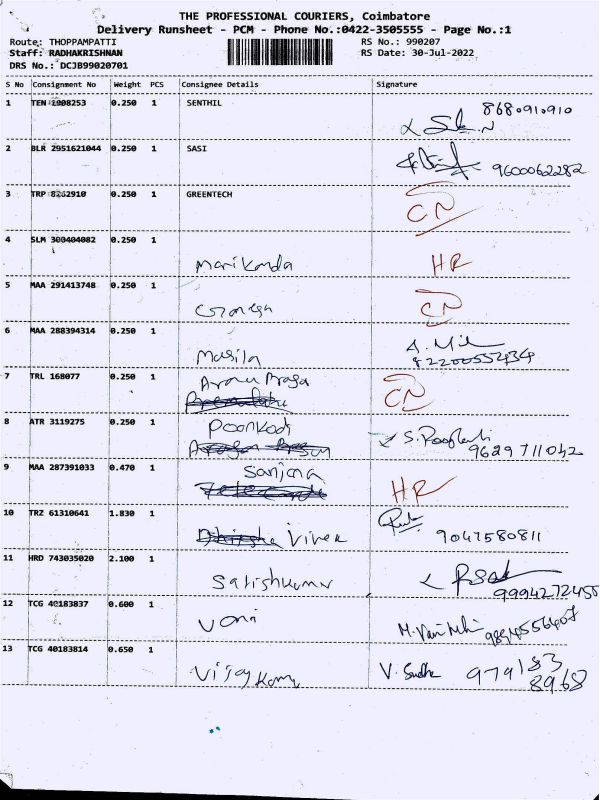 THE PROFESSIONAL COURIERS, Coimbatore
Delivery Runsheet - PCM - Phone No.:0422-3505555 - Page No.:1
Route: THOPPAMPATTI RS No.: 990207
Staff: RADHAKRISHNAN RS Date: 30-Jul-2022
DRS No.: DCJB99020701
S No Consignment No Weight PCS Consignee Details Signature
1 TEN 2908253 0.250 1 SENTHIL 8680910910
2 BLR 2951621044 0.250 1 SASI 9600062282
3 TRP 8262910 0.250 1 GREENTECH CN
4 SLM 300404082 0.250 1 Manikanda HR
5 MAA 291413748 0.250 1 Ganesh CN
6 MAA 288394314 0.250 1 Masila
7 TRL 168077 0.250 1 CN
8 ATR 3119275 0.250 1 Poonkodi 9629711042
9 MAA 287391033 0.470 1 Sanjana HR
10 TRZ 61310641 1.830 1 Vivek 9047580811
11 HRD 743035020 2.100 1 Satishkumar 9994272455
12 TCG 40183837 0.600 1 Vani
13 TCG 40183814 0.650 1 Vijay Kumar V. Sudha 979183
8968